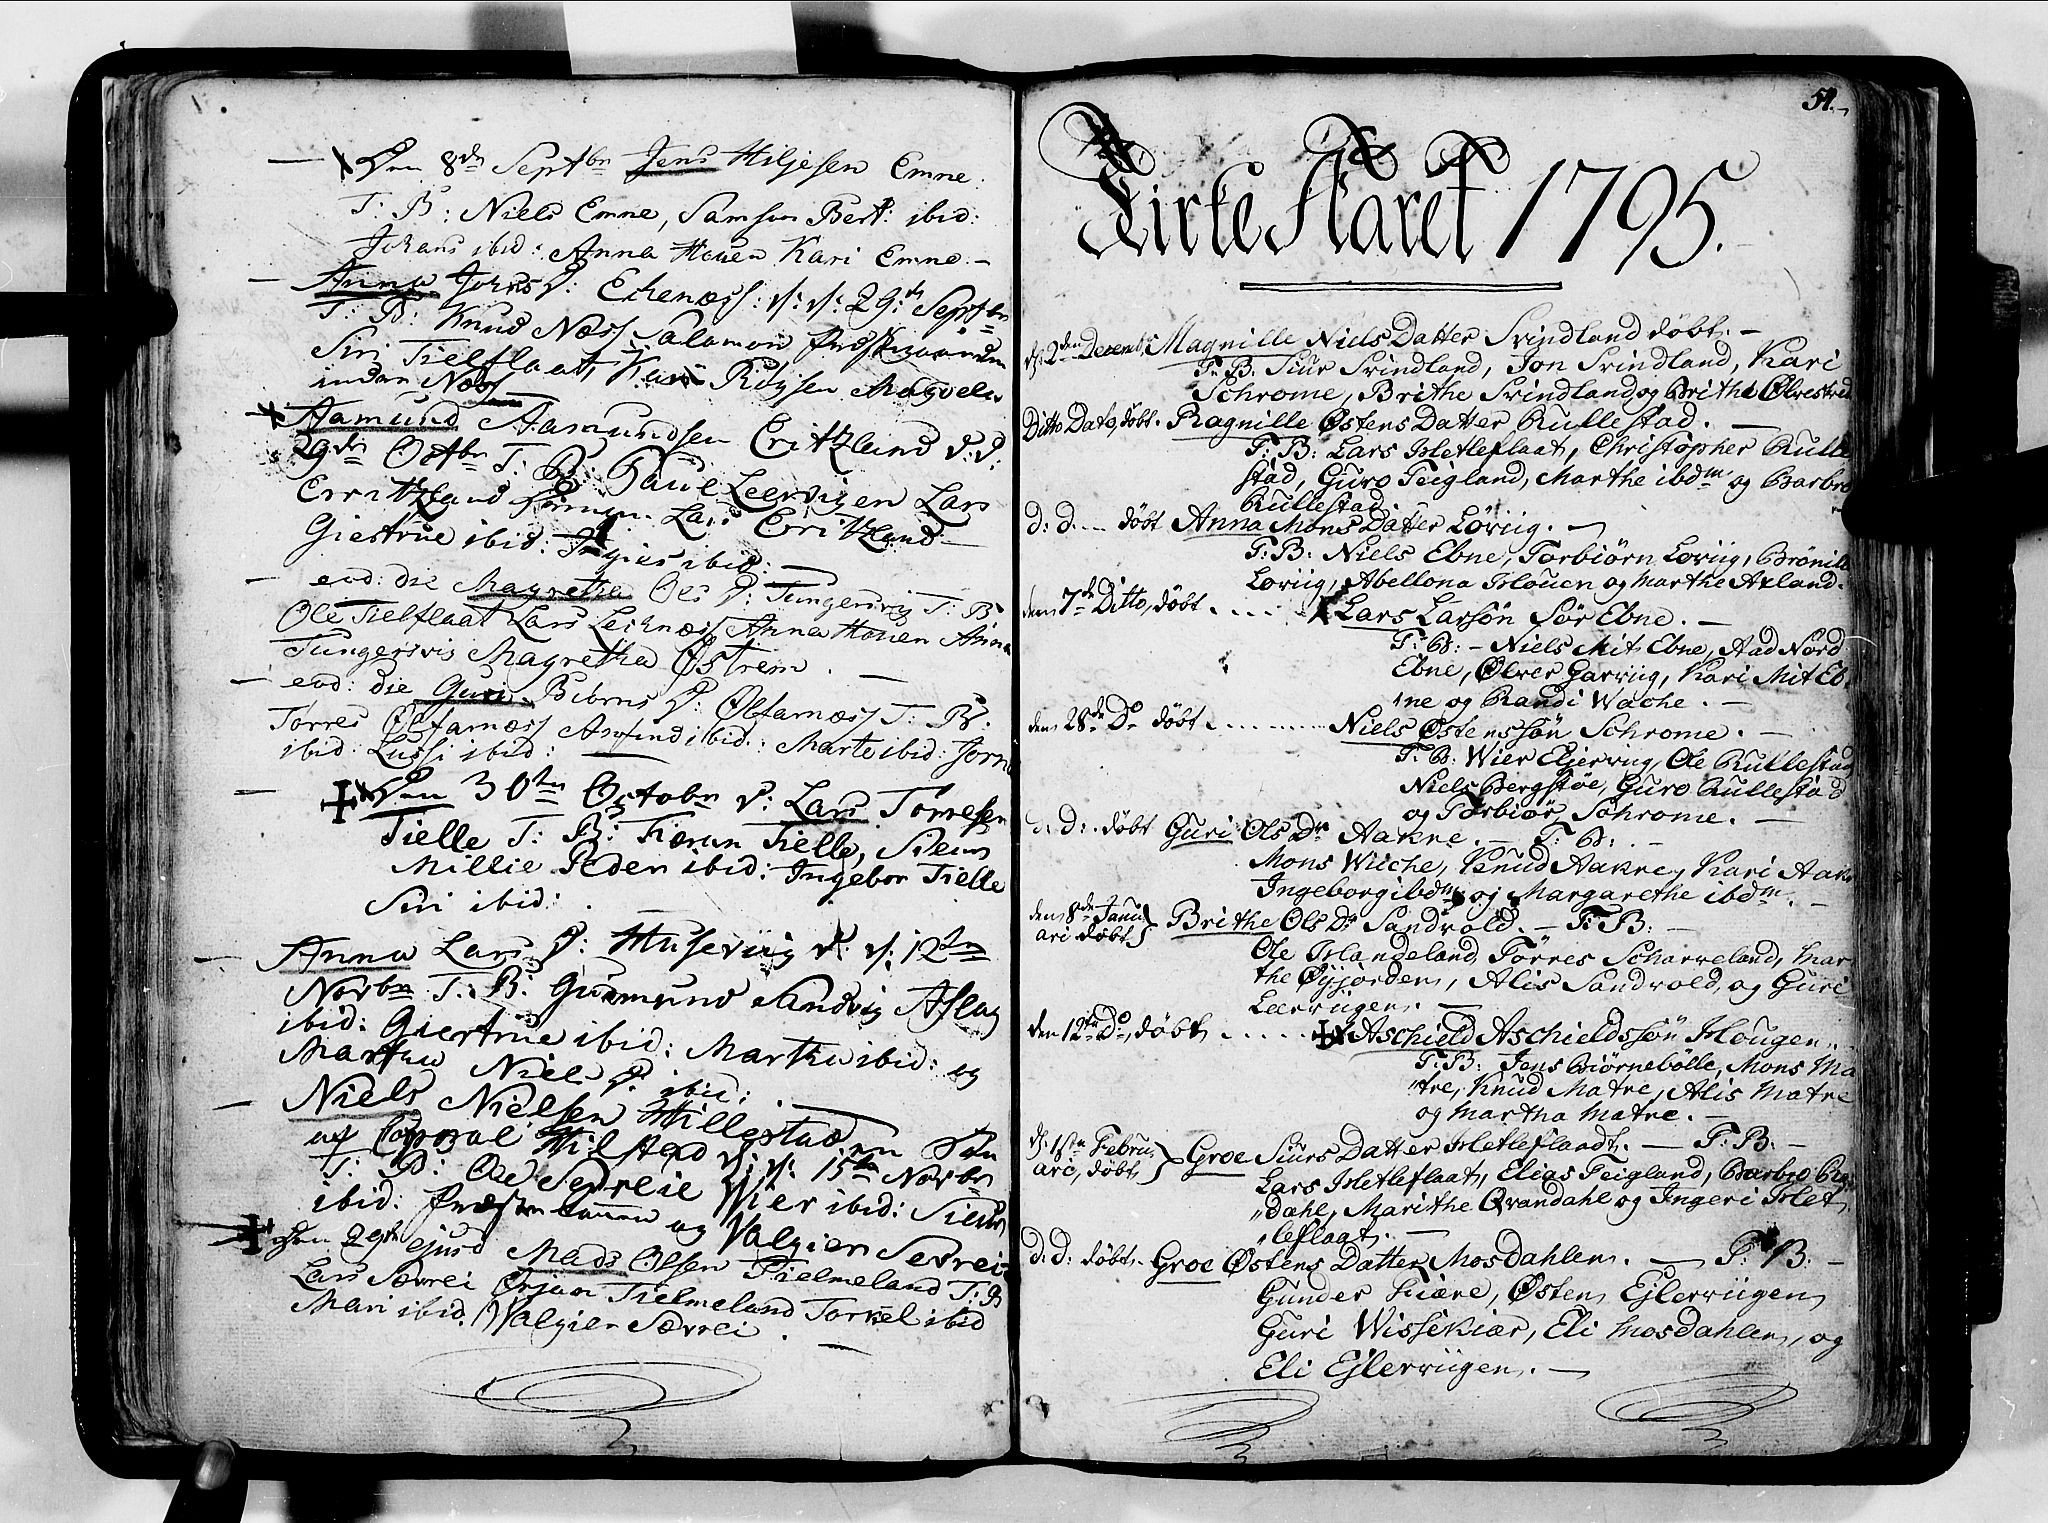 Den 8de Septbr Jens Hiljesen Emne:
T: B: Niels Emne, Samson Bert: ibid:
Johans ibid: Anna Houen Kari Emne. -
Anna Johns D: Eikenæss: d: d: 29: Septbr
T: B: Knud Næss Salamon
Siri Tielflaat, Kari Magdela
Næss
Aamund Aamundsen Eritzland d: d:
29de Octbr T: B: Paul Leervigen Lars
Erritzland Lars Erritzland
Giertrue ibid: ibid: -
eod: die Magretha Ols D: Tungesvig T: B
Ole Tielflaat Lars Leiknæss Anna Houen Anna
Tungesvig Magretha Østrem. -
eod: die Guri Biörns D: Ølfarnæss T: B.
Torres Ølfarnæss Amund ibid: Marte ibid:
ibid: Lussi ibid:
Den 30te Octobr d: Lars Torresen
Tielle T: B: Tielle,
Millie Peder ibid: Ingebor Tielle
Siri ibid: .
Anna Lars D: Husevüg d: d: 12te
Novbr T: B. Gudmund Sandvig Aslag
ibid: Giertrue ibid: Martha ibid: og
Martha Niels D. ibid:
Niels Nielsen Hillestad
T: B: Ole Sevreie Wier ibid: 15de Novbr
ibid: og Valgier Sevrei
den 29de ejusd Mads Olsen Tielmeland T: B
Lars Sævrei Ørjan Tielmeland Torkel ibid
Mari ibid. Walgier Sævrei .
54.
Kirke Aaret 1795.
d: 2den Decembr Magnille Niels Datter Svindland döbt. -
T: B: Siur Svindland, Jon Svindland, Kari
Schrome, Brithe Svindland og Brithe Ølvestved
Ditto Dato, döbt. Ragnille Østens Datter Rullestad. -
T: B: Lars Hetleflaat, Christopher Rulle
stad, Guro Teigland, Marthe ibdm og Barbro
Rullestad
d: d: döbt Anna Mons Datter Löviig. -
T: B: Niels Ebne, Torbiörn Loviig, Brönille
Loviig, Abellona Houen og Marthe Axland.
den 7de Ditto, döbt . . . . . Lars Larsön Sör Ebne. -
T: B: - Niels Mit Ebne, Aad Nord
Ebne, Ølver Garviig, Kari Mit Eb
ne og Randi Wache. -
den 28de Do döbt . . . . . . Niels Østenssön Schrome. -
T: B: Wier Ejervig, Ole Rullestad
Niels Bergstöe, Guro Rullestad
og Torbiör Schrome. -
d. d: döbt Guri Ols Dr Aakre. - T: B: -
Mons Wiche, Knud Aakre, Kari Aakr
Ingeborg ibdm og Margarethe ibdm. -
den 8de Janu
ari döbt Brithe Ols Dr Sandvold. - T: B: -
Ole Handeland Törres Scharveland, Mar
the Øyjorden, Alis Sandvold, og Guri
Leerviigen. -
den 12te Do, döbt . . . . . Aschield Aschieldssön Hougen. -
T: B: Jens Biörnebölle, Mons Ma
tre, Knud Matre, Alis Matre
og Martha Matre. -
d: 1ste Febru,
arii, döbt, Groe Siurs Datter Hetleflaadt. - T: B: -
Lars Hetleflaat, Elias Teigland, Barbro
dahl, Marithe Qvandahl og Ingeri Hlet
leflaat. -
d: D: döbt. Groe Østens Datter Mosdahlen. - T: B: -
Gunder Kiære, Østen Ejlerviigen
Guri Wissekiær, Eli Mosdahlen, og
Eli Ejlerviigen. -